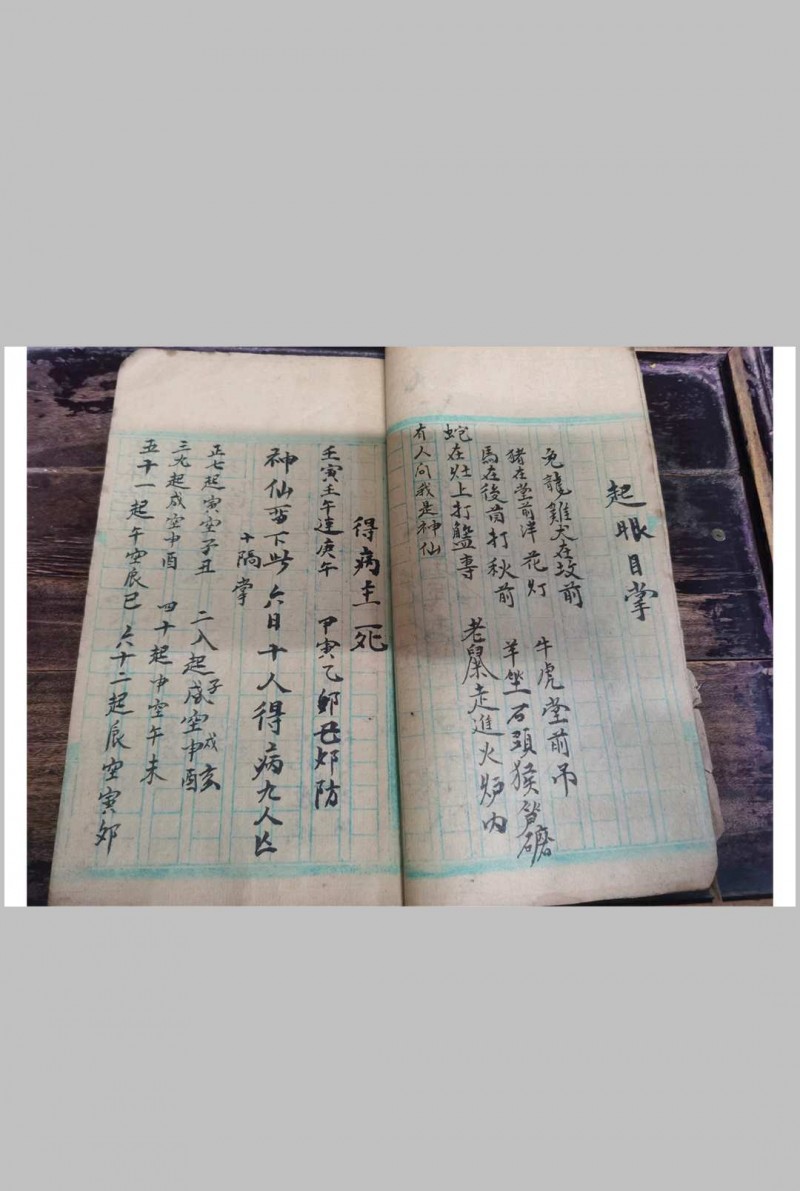 起眼目掌
兔龍雞犬在坟前 牛虎堂前吊
猪在堂前洋花灯 羊坐石頭猴
馬在後 打秋前 老鼠走進火炉內
蛇在灶上打
有人问我是神仙
得病主死
壬寅壬午連庚午 甲寅乙卯己卯防
神仙留下此六日十人得病九人亡
十隔掌
正七起寅空子丑 二八起子空戌亥
三九起戌空申酉 四十起申空午未
五十一起午空辰巳 六十二起辰空寅卯